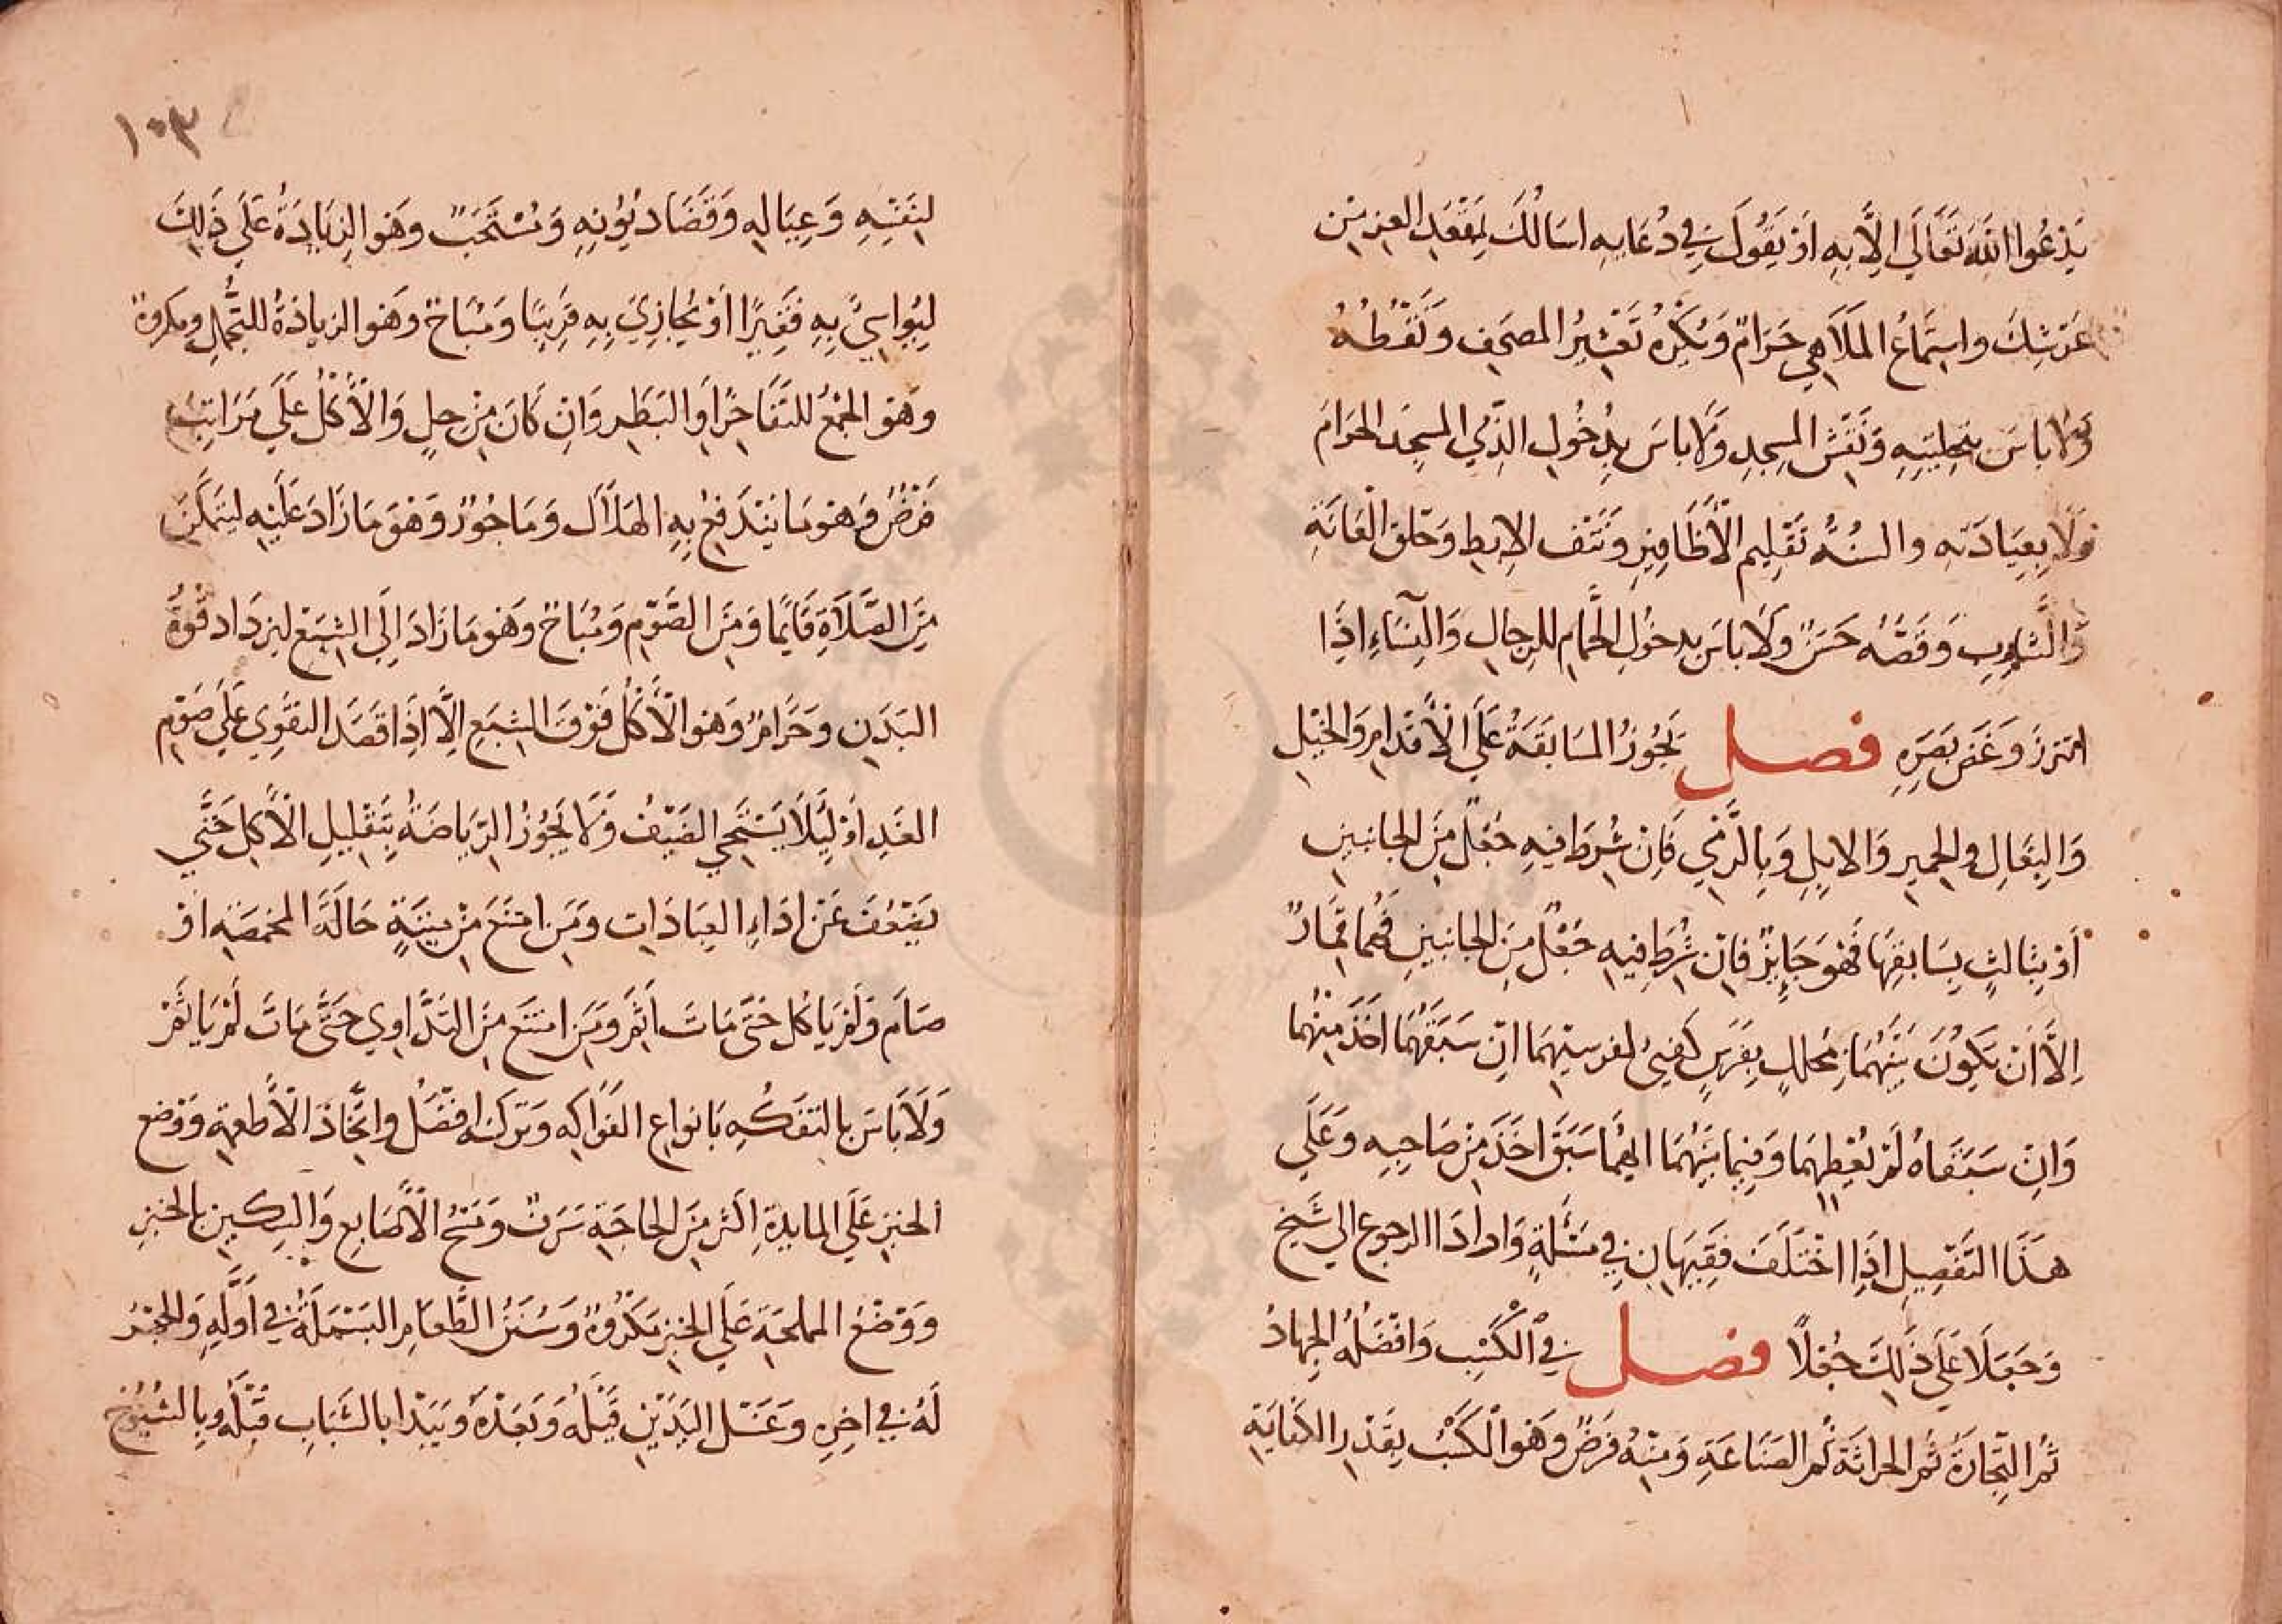 يَدْعُوا اللهَ تَعَالَى اِلَّا بِهِ اَوْ يَقُولَ فِي دُعَايِهِ اسَالُكَ بِمَقْعَدِ العِزِ مِنْ
عَرْشِكَ واسْتِمَاعُ المَلَاهِي حَرَامٌ وَيُكْرَهُ تَعْشِيْرُ المصَحَفِ وَنَقْطُهُ
وَلَا باسَ بتحِليَتِهِ وَنَقْشِ المسِجدِ وَلَا باسَ بِدُخُولِ الذِّمِي المسِجدَ الحَرَامَ
وَلَا بِعِيَادَتهِ والسُنَّةُ تَقْلِيم الْأَظَافِيْرِ وَنَتْف الاِبطِ وَحَلْق الْعَانَةِ
وَالشَارِبِ وَقَصُّهُ حَسَنٌ وَلَا باسَ بدِخُولِ الحَّمامِ للرِجالِ وَالنِسَاءِ اذَا
اتزرَ وَغَض بَصَرِهِ فصل يَجُوزُ المسَابقَةُ عَلَى الْأَقدَامِ وَالخيْلِ
وَالبِغَالِ والحمِيرِ وَالابِلِ وَبِالرَّمْي فَاِنْ شُرِطَ فيهِ جَعْل مِنَ الجانِبَينِ
اَوْ بِثالثٍ يِسَابقِهَا فَهُوَ جَايِزٌ فاِنْ شُرِطَ فيهِ جَعْل مِنَ الجانبَينِ فَهُما قِمَارٌ
اِلَّا اَنْ يَكوُنَ بَيْنَهُمَا مُحَللٍ بِفَرَسٍ كفِىءٍ لفرسيْهمَا اِنْ سَبَقَهُمَا اخَذَ مِنْهُما
وَانْ سَبَقاهُ لَمْ يُعْطِهِمَا وَفِيما بَيْنَهُمَا ايهُما سَبَقَ اخَذَ مِنْ صَاحِبِهِ وَعَلَى
هَذَا التَفْصِيلِ اذَا اخْتَلَفَ فَقِيهَانِ فِي مَسْئَلَةٍ وَارادَا الرجوعَ الي شَيخٍ
وَجَعَلَا عَلَى ذَلِكَ جُعْلًا فصل في الكَسْبِ وَافْضَلُهُ الجِهادُ
ثمَّ التِجّارَةُ ثُم الحِراثَة ثُم الصَنَاعَةِ وَمِنْهُ فَرَضٌ وَهْوَ الكَسْبُ بِقَدْرِ الكفايَةِ
١٠٣
لِنَفْسِهِ وَعِيَالهِ وَقَضَا دُيُونِهِ وَمُسْتَحَبٌ وَهْوَ الزِيَادَةُ عَلَى ذَلِكَ
لِيُواسِيَ بِهِ فَقِيرًا اَوْ يُجَازِيَ بِهِ قَرِيبًا وَمُبَاحٌ وَهْوَ الزيادَةُ للتجُّملِ ومكروهٌ
وهْوَ الجَمْعُ للتَفَاخُرِ اَوِ البَطَرِ وَانْ كَانَ مِنْ حِلٍ وَالْأَكْلُ عَلَى مَرَاتِبَ
فَرْضٌ وَهْوَ مَا يَنْدَفِعُ بِهِ الهَلَاك وَمَاجُوْرٌ وَهْوَ مَا زَادَ عَلَيْهِ ليَتمَكنَ
مِنَ الصَلَاةِ قَايمًا وَمِنَ الصَوْمِ وَمُبَاحٌ وهْوَ مَا زَادَ اِلَى الشِبَعِ لِيزدَادَ قُوَّةُ
البَدَنِ وحَرَامٌ وَهْوَ الْأَكْلُ فَوْقَ الشِبَعِ اِلَّا اذَا قصَدَ التقَوِي عَلَى صَوْمِ
الغَدِ اَوْ لِئَلَّا يَسْتَحِي الضَيْفُ وَلَا يَجُوزُ الرِيَاضَةُ بِتَقْلِيلِ الْأَكلِ حَتَّى
يَضعُفَ عَنْ ادَاءِ العِبَادَاتِ ومَنِ امتَنَعَ مِنْ مِيْتَةٍ حَالَةَ المخمصَةِ اوْ
صَامَ وَلَمْ يَاكُل حَتّى مَاتَ اَثِمَ وَمَنِ امتَنَع مِنَ التَدَّاوِي حَتَّى مَاتَ لَمْ يَاثَمْ
وَلَا بَاسَ بالتفَكُهِ بَانواعِ الفَوَاكِهِ وَترَكهُ افْضَلُ واتِّخَاذ الْأَطعمةِ وَوَضع
الخبزِ عَلَى المايدةِ اكثر مِنَ الحَاجَةِ سَرَفٌ وَمَسْحُ الْأَصَابعِ وَالسِكينِ بالخبزِ
وَوَضْعُ المملحَةِ عَلَى الخبزِ مَكْرُوهٌ وَسُنَنُ الطَّعَامِ البَسْمَلَةُ فِي اَوَّلَهِ وَالحَمْدُ
لَهُ فِي اخِرِهِ وَغَسْل اليَدَيْنِ قَبْلَهُ وَبَعْدَهُ وَيَبْدَا بالشَبَابِ قبْلَهُ وبِالشُيُوخ